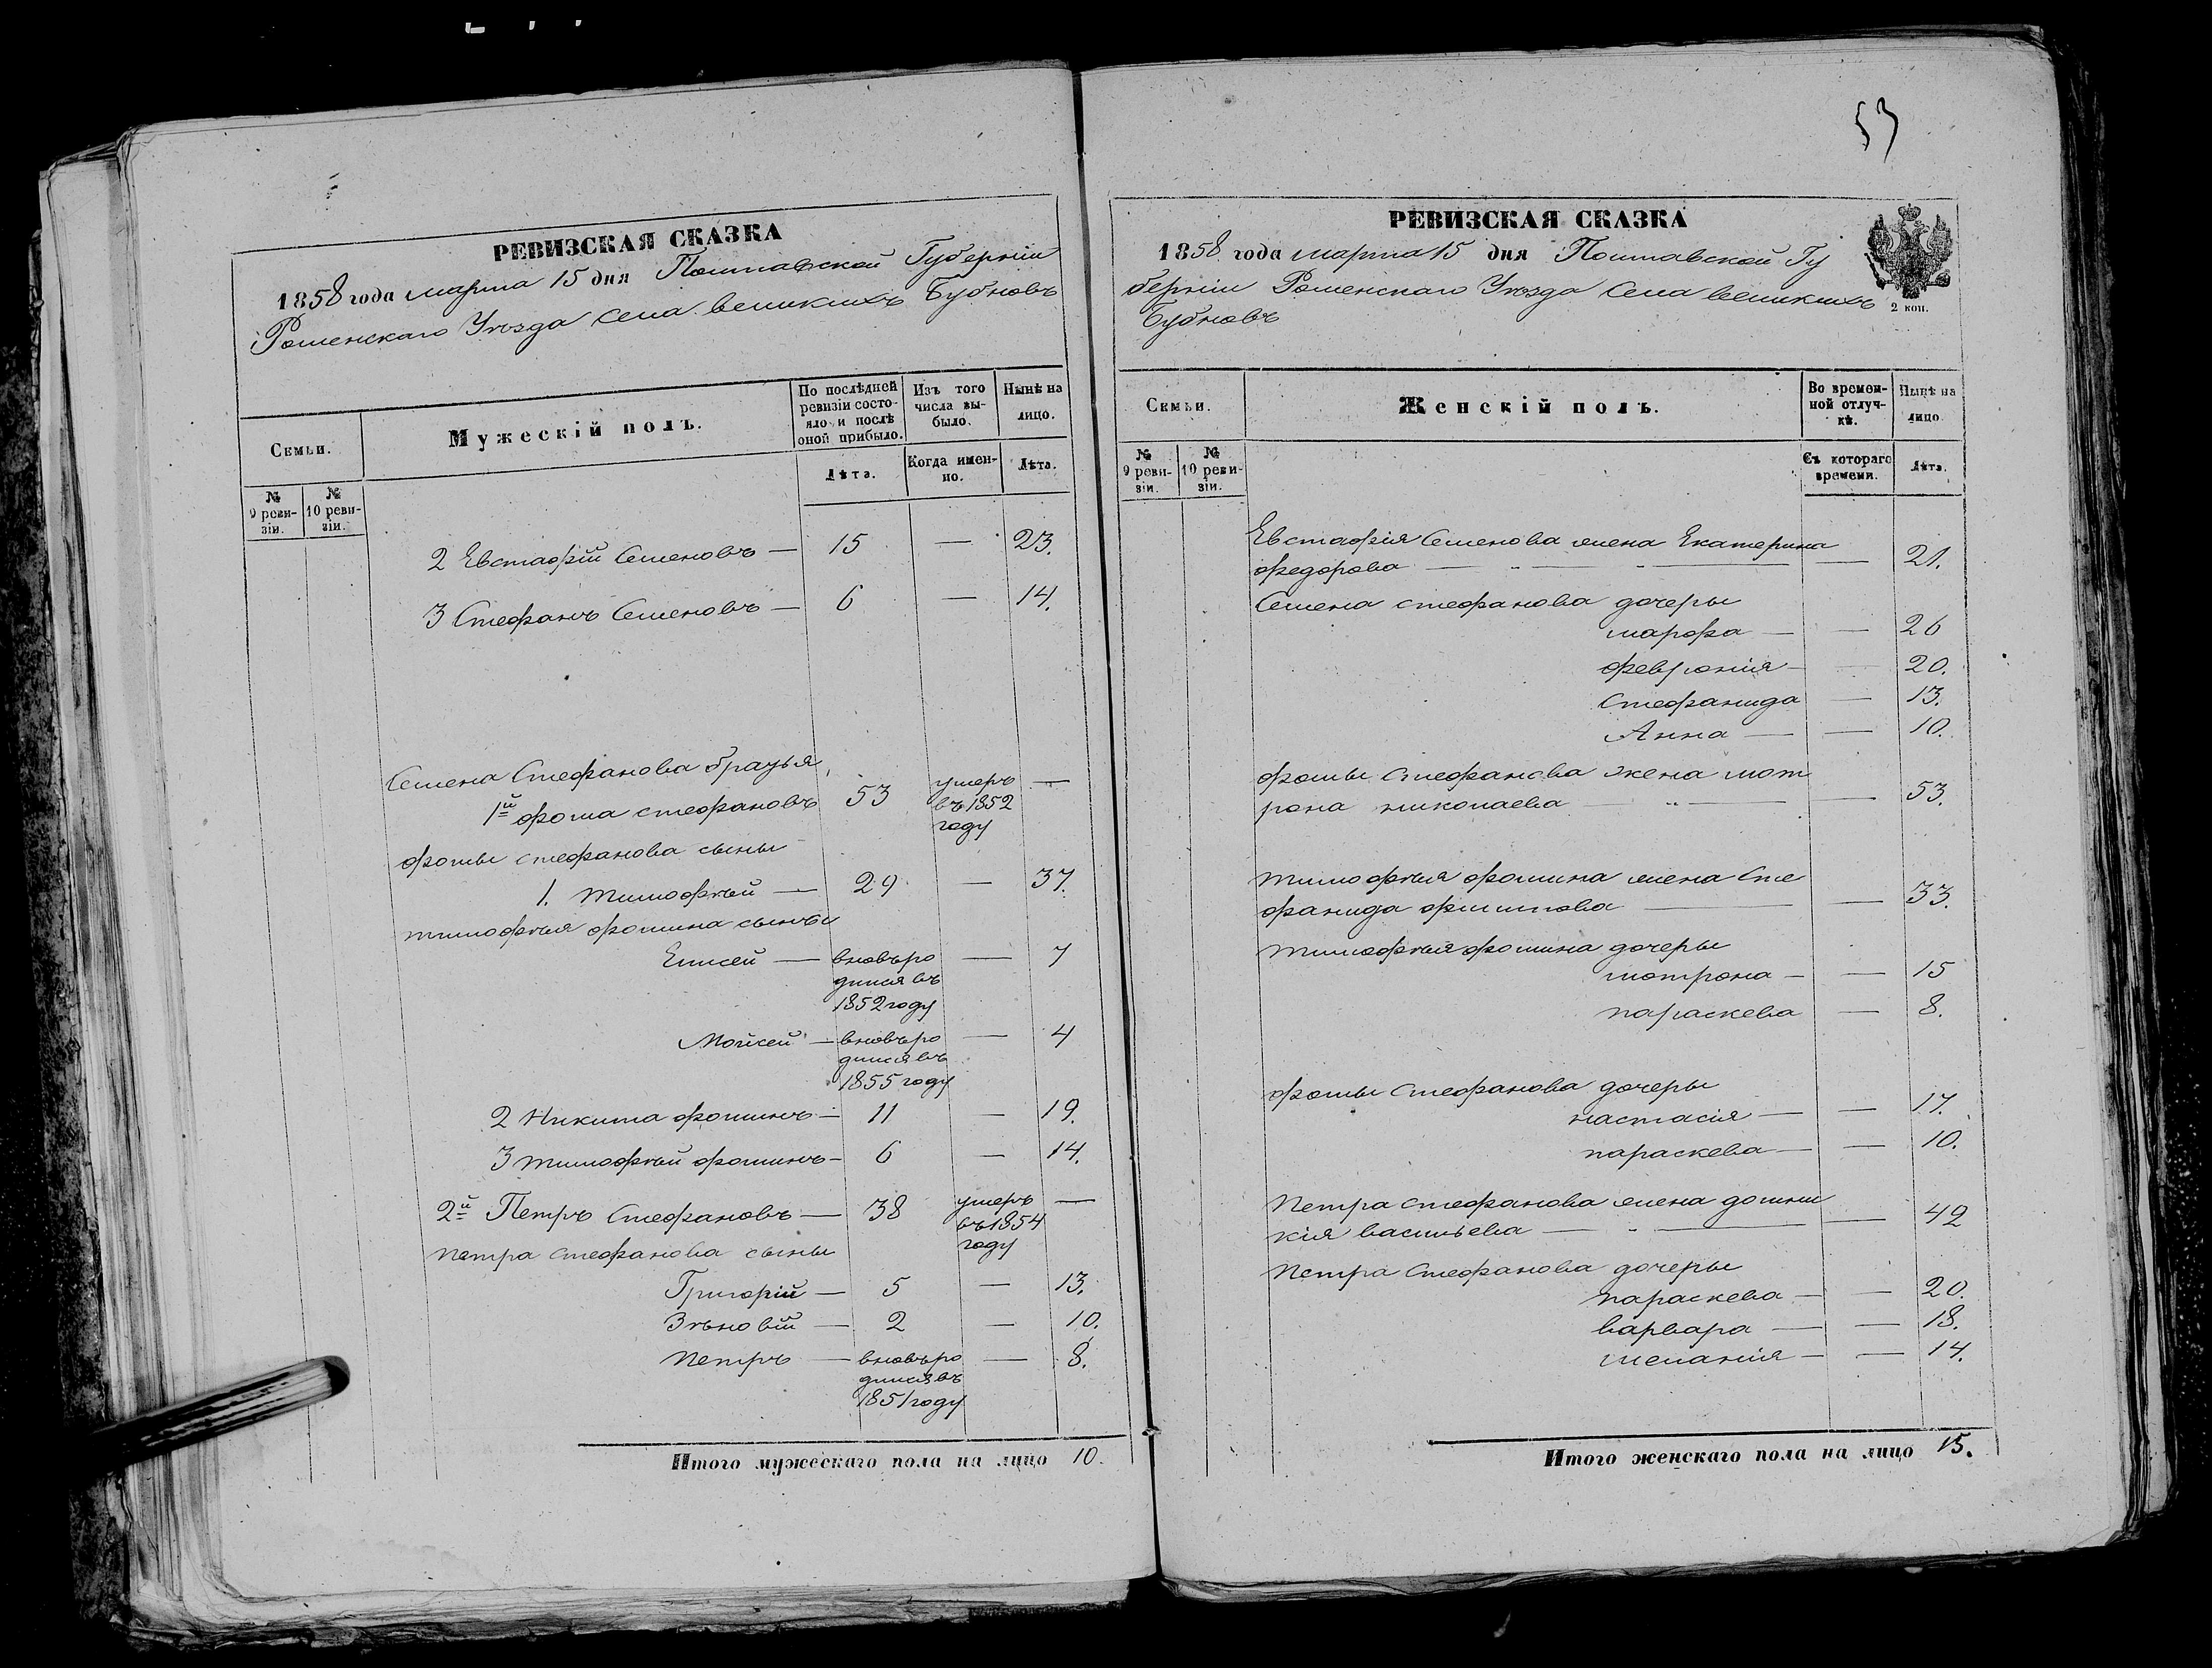 53
РЕВИЗСКАЯ СКАЗКА
1858 года марта 15 дня Полтавской Губерніи
Роменскаго Уѣзда Села великихъ Бубновъ
Семьи.
Мужескій полъ.
По послѣдней ревизіи состояло и послѣ оной прибыло.
Изъ того числа выбыло.
Нынѣ на лицо.
№ 9 ревизіи.
№ 10 ревизіи.
Лѣта.
Когда именно.
Лѣта.
2 Евстафій Семеновъ — 15 — 23.
3 Стефанъ Семеновъ — 6 — 14.
Семена Стефанова братья
1й фома стефановъ 53 умеръ —
въ 1852
году
фомы стефанова сыны
1. тимофѣй — 29 — 37.
тимофѣя фомина сыны
Елисей — вновьро — 7
дился въ
1852 году
Мойсей — вновьро — 4
дился въ
1855 году
2 Никита фоминъ — 11 — 19.
3 тимофѣй фоминъ — 6 — 14.
2й Петръ Стефановъ — 38 умеръ —
въ 1854
году
петра стефанова сыны
Григорій — 5 — 13.
Зѣновій — 2 — 10.
петръ — вновьро — 8.
дился въ
1851 году
Итого мужескаго пола на лицо 10.
РЕВИЗСКАЯ СКАЗКА
1858 года марта 15 дня Полтавской Гу
берніи Роменскаго Уѣзда Села великихъ
Бубновъ
2 коп.
Семьи.
Женскій полъ.
Во временной отлучкѣ.
Нынѣ на лицо
№ 9 ревизіи.
№ 10 ревизіи.
Съ котораго времени.
Лѣта.
Евстафія Семенова жена Екатерина
федорова — — 21.
Семена стефанова дочеры
марфа — — 26
феврлонія — — 20.
Стефанида — 13.
Анна — — 10.
фомы стефанова жена мот
рона николаева — — 53.
тимофѣя фомина жена Сте
фанида филипова — — 33.
тимофѣя фомина дочеры
мотрона — — 15
параскева — 8.
фомы Стефанова дочеры
настасія — — 17.
параскева — — 10.
Петра стефанова жена домни
кія васильева — — 42
Петра Стефанова дочеры
параскева — — 20.
варвара — — 18.
меланія — — 14.
Итого женскаго пола на лицо 15.